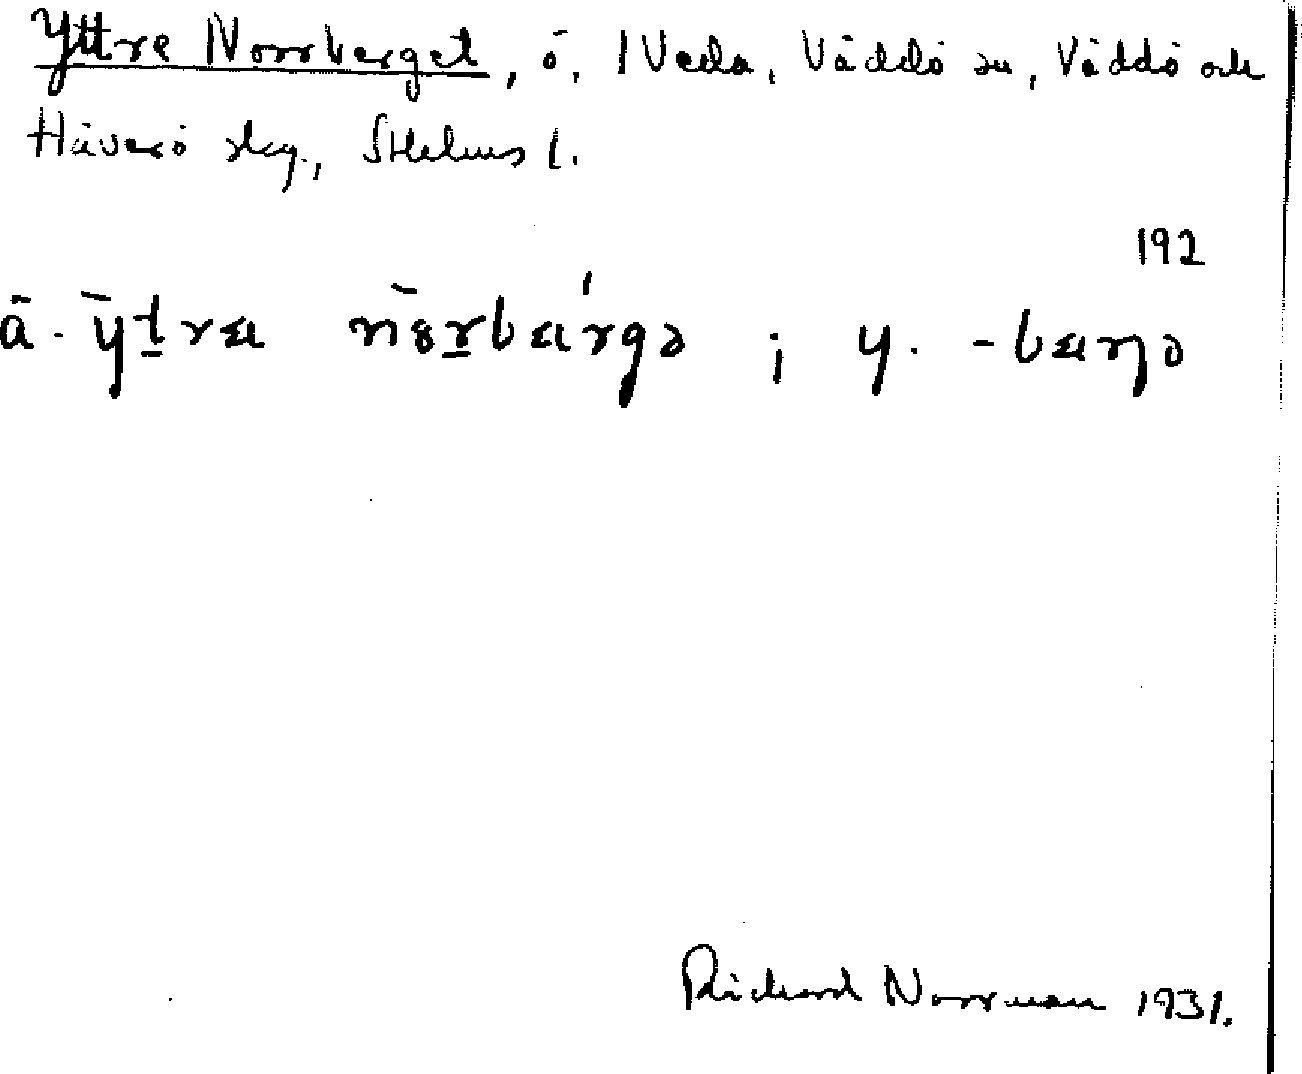 Yttre Norrberget, ö, I Veda, Väddö sn, Väddö och
Häverö skg., Sthlms l.
192
ā. ȳt̲ræ n̄ɞr̲bæ´rgə ; y. -bærjə
Richard Norrman 1931.